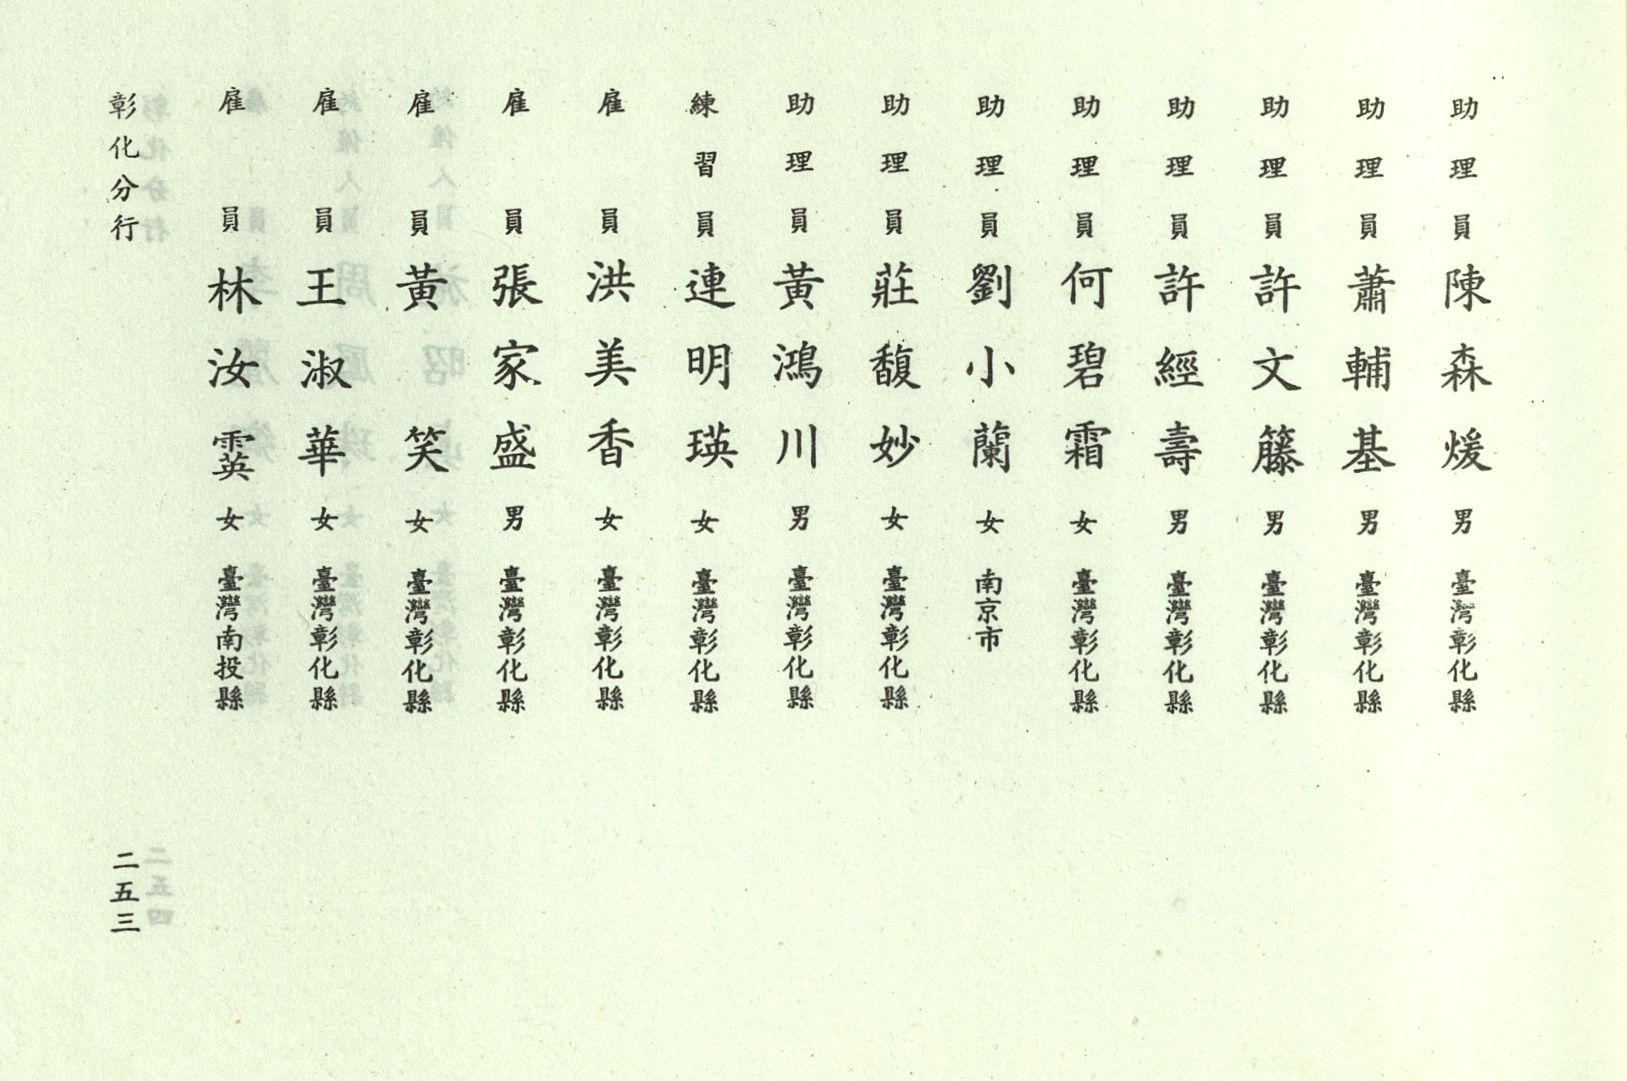 助理員陳森煖男臺灣彰化縣
助理員蕭輔基男臺灣彰化縣
助理員許文籐男臺灣彰化縣
助理員許經壽男臺灣彰化縣
助理員何碧霜女臺灣彰化縣
助理員劉小蘭女南京市
助理員莊馥妙女臺灣彰化縣
助理員黃鴻川男臺灣彰化縣
練習員連明瑛女臺灣彰化縣
雇員洪美香女臺灣彰化縣
雇員張家盛男臺灣彰化縣
雇員黃笑女臺灣彰化縣
雇員王淑華女臺灣彰化縣
雇員林汝霙女臺灣南投縣
彰化分行
二五三